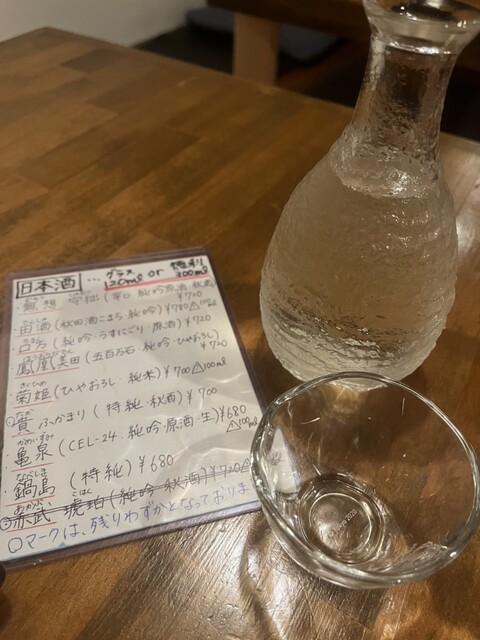 日本酒 … グラス 120ml or 徳利 300ml
無想 (辛口 純吟原酒 秋酒) ¥720
宙酒 (秋田酒こまち・純吟) ¥780 △100ml
(純吟・うすにごり・原酒) ¥720
鳳凰美田 (五百万石・純吟・ひやおろし) ¥720
きくひめ
菊姫 (ひやおろし・純米) ¥700 △100ml
たか
貴 ふかまり (特純・秋酒) ¥700
かめいずみ
亀泉 (CEL-24・純吟・原酒・生) ¥680 △100ml
なべしま
鍋島 (特純) ¥680
あかぶ こはく
赤武 琥珀 (純吟・秋酒) ¥720
○マークは、残りわずかとなっておりま